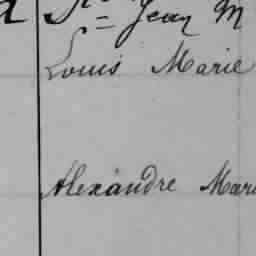 St Jean M
Louis Marie
Alexandre Mari